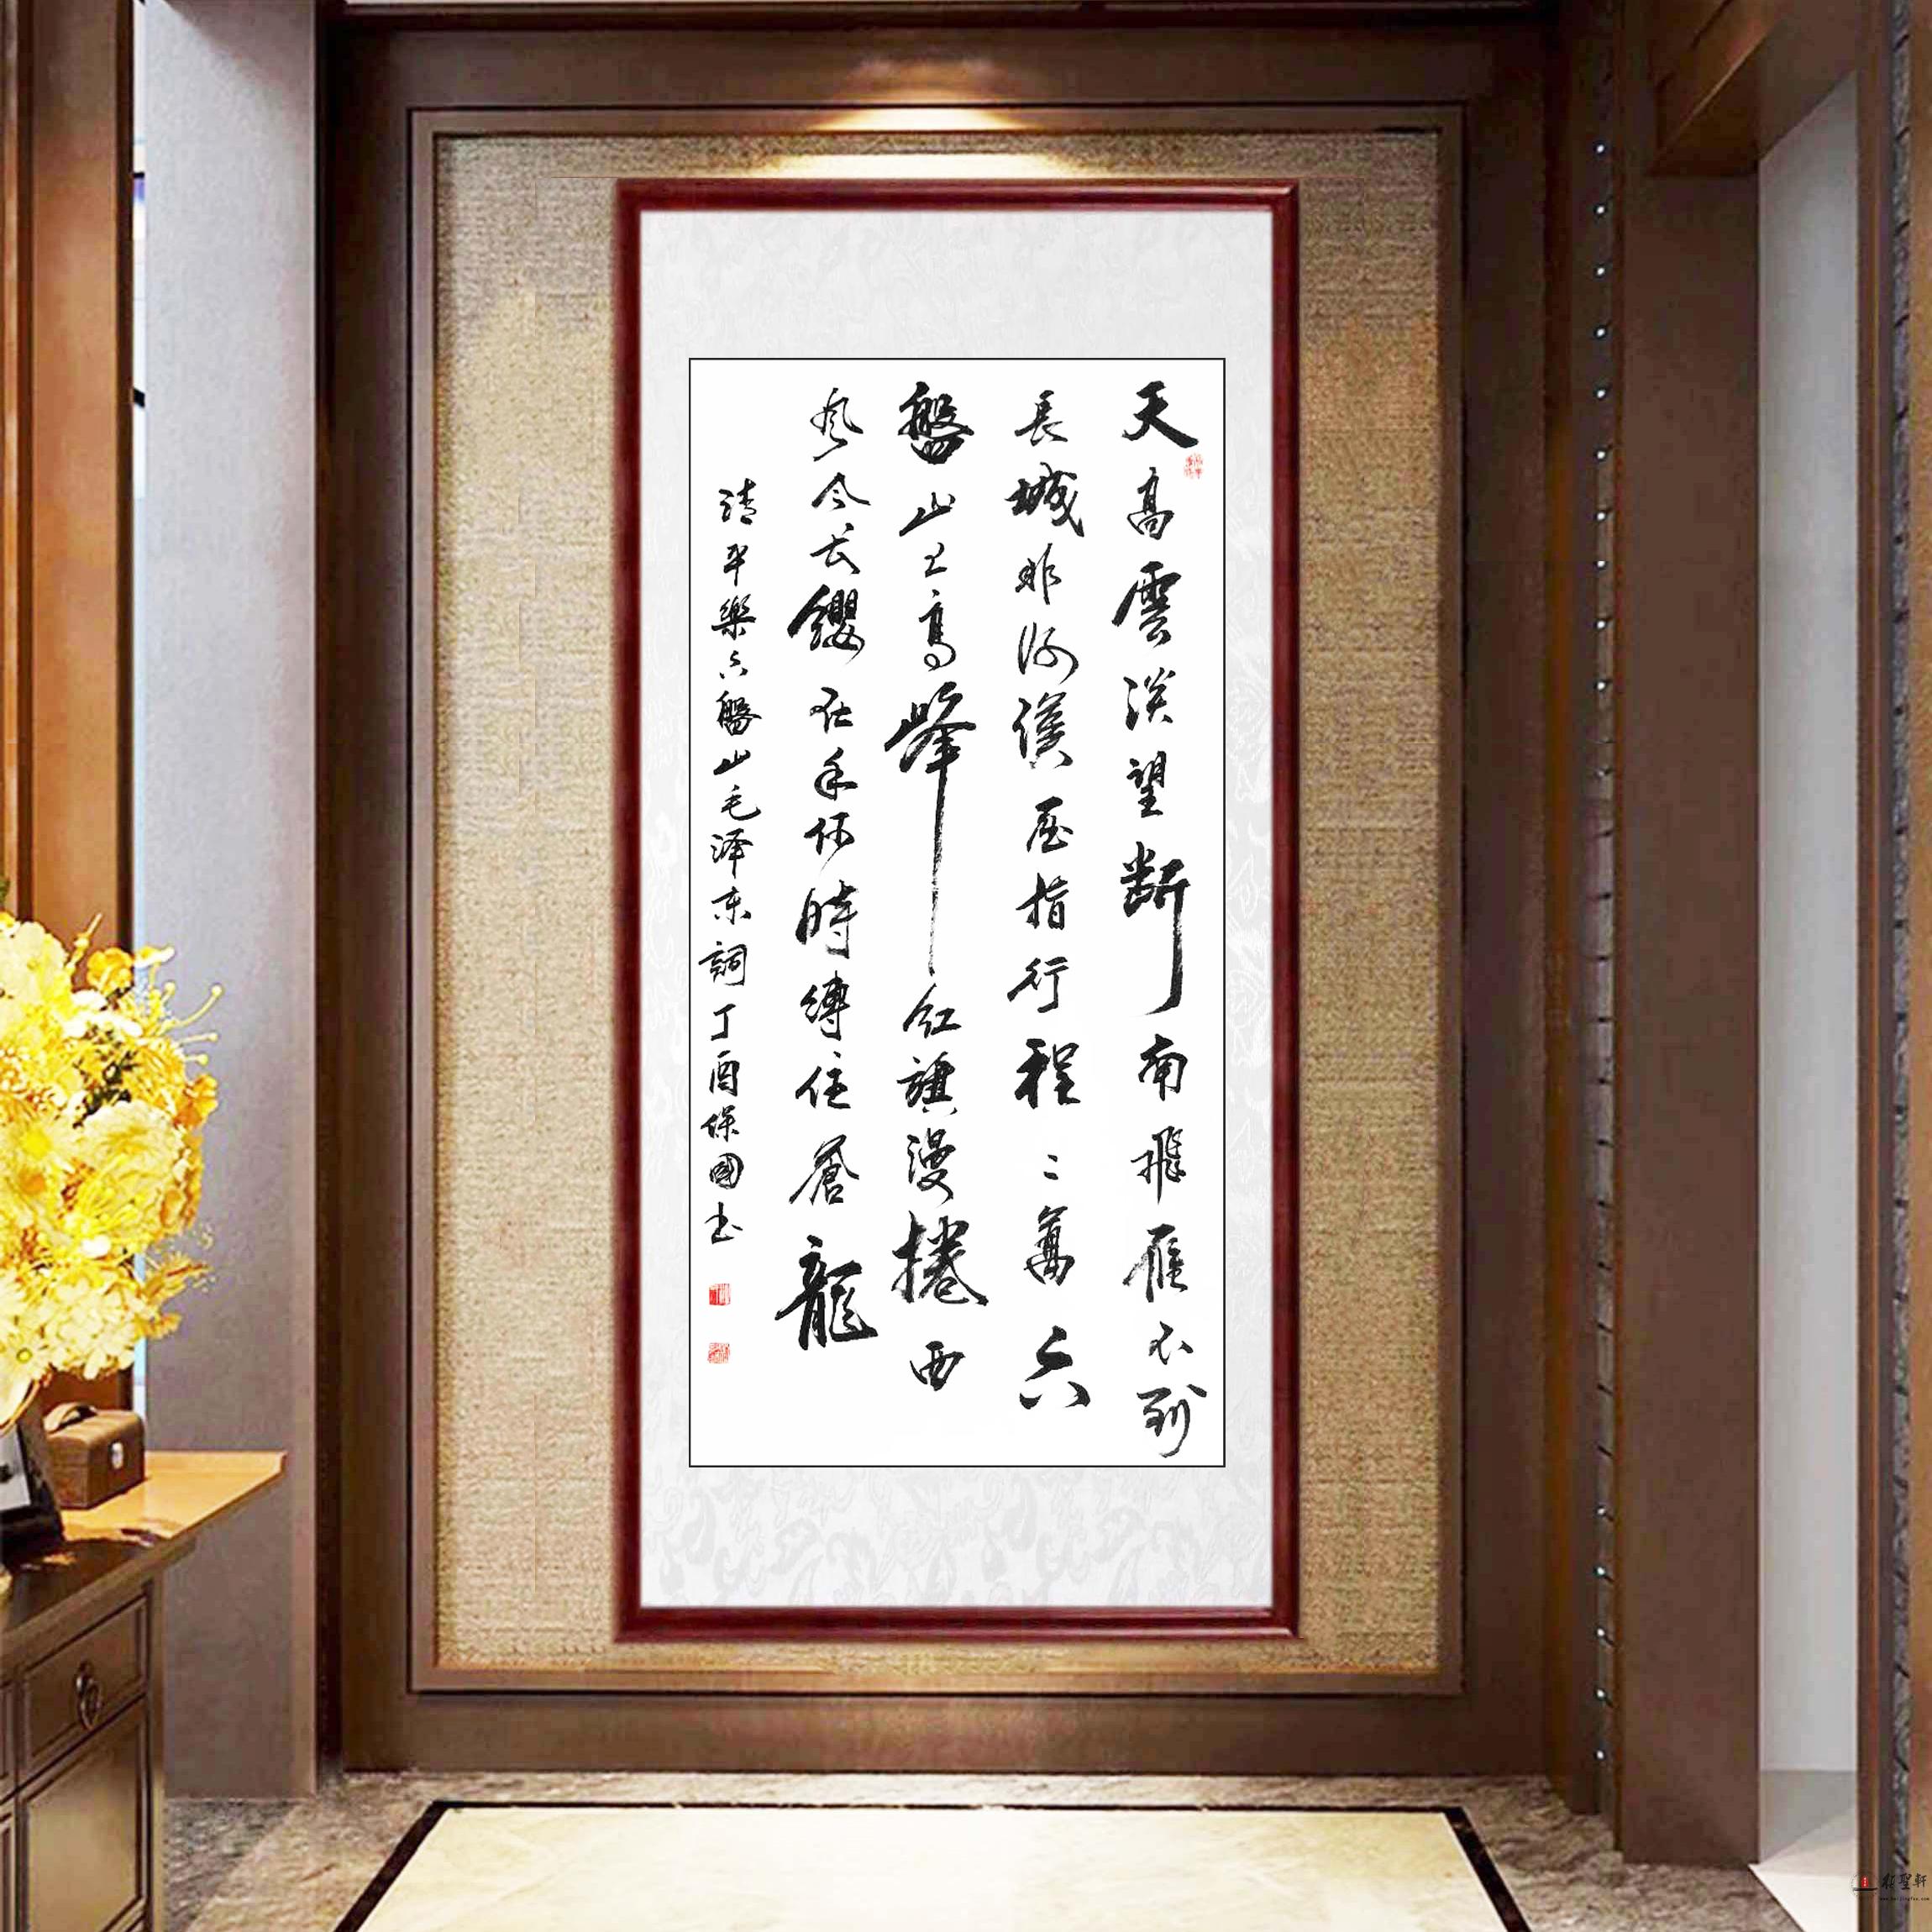 天高雲淡望斷南飛雁不到
長城非好漢屈指行程二萬六
盤山上高峰紅旗漫捲西
風今长纓在手何時縛住蒼龍
清平樂六盤山毛泽东詞丁酉保國书